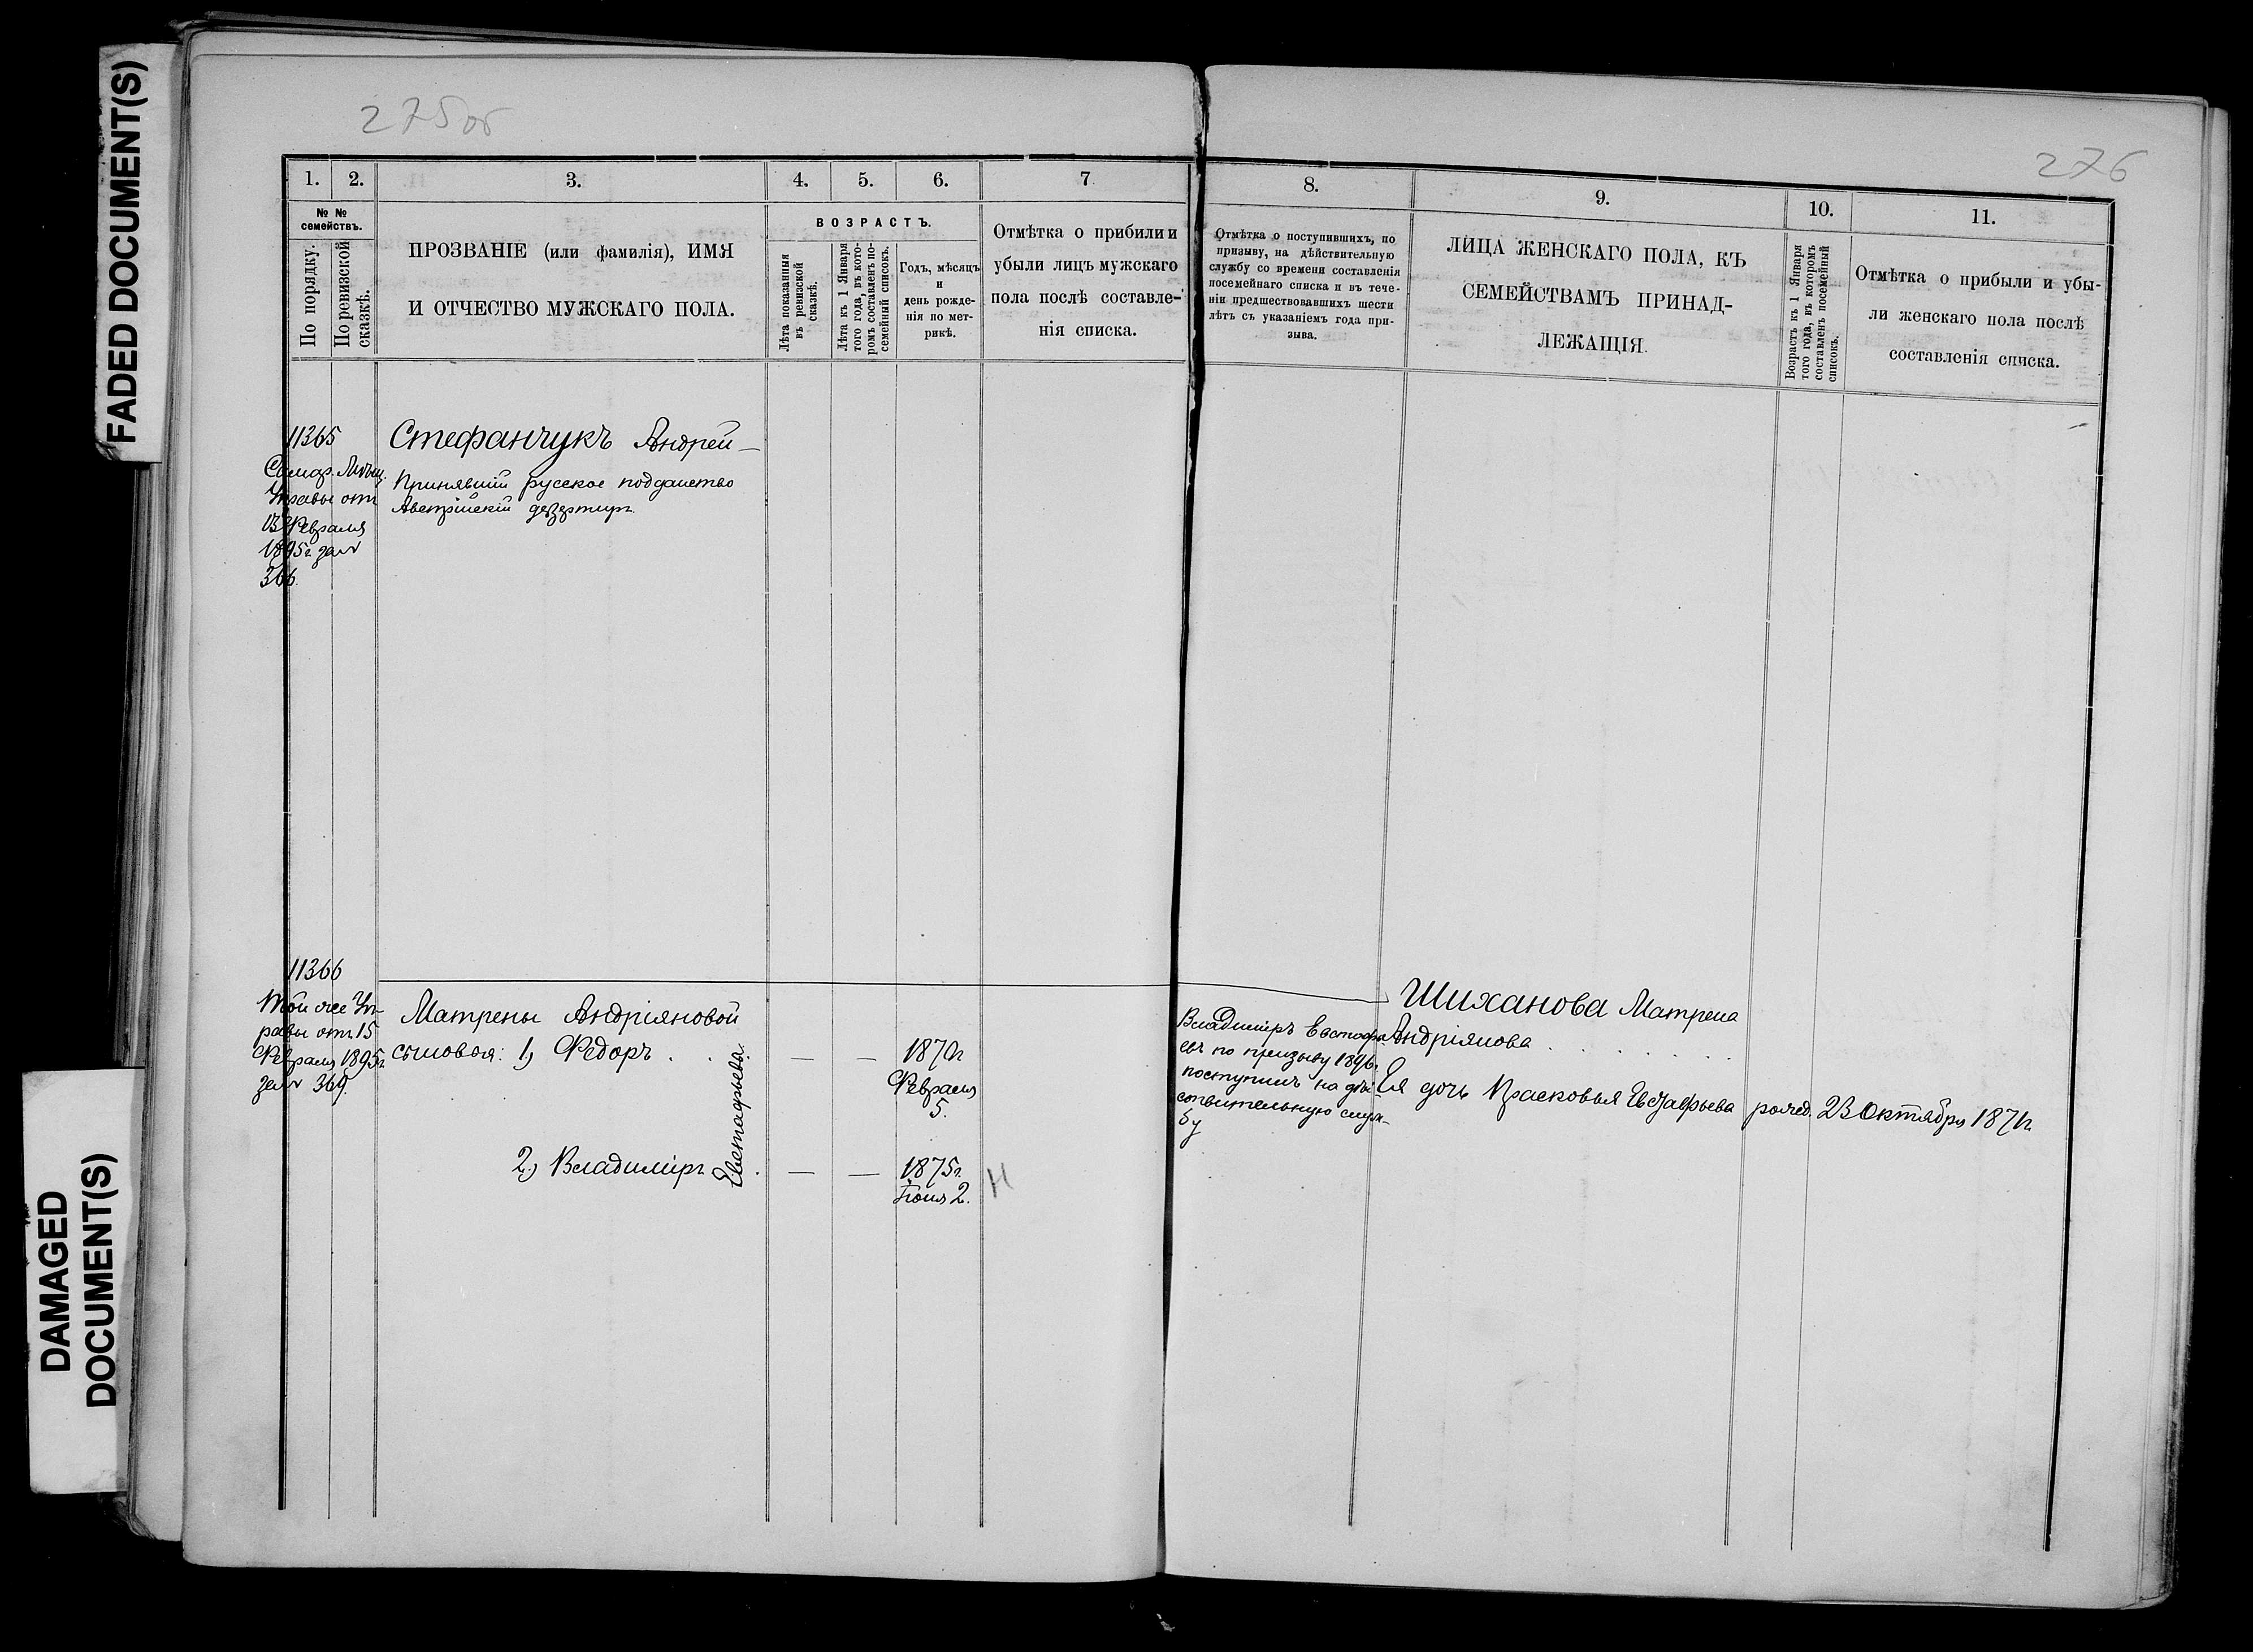 FADED DOCUMENT(S)
DAMAGED
DOCUMENT(S)
275об
276
1.
2.
3.
4.
5.
6.
7.
8.
9.
10.
11.
№ №
семействъ.
По порядку.
По ревизской
сказкѣ.
ПРОЗВАНІЕ (или фамилія), ИМЯ
И ОТЧЕСТВО МУЖСКАГО ПОЛА.
ВОЗРАСТЪ.
Лѣта показанныя
въ ревизской
сказкѣ.
Лѣта къ 1 Января
того года, въ кото-
ромъ составленъ по-
семейный списокъ.
Годъ, мѣсяцъ
и
день рожде-
нія по мет-
рикѣ.
Отмѣтка о прибыли и
убыли лицъ мужскаго
пола послѣ составле-
нія списка.
Отмѣтка о поступившихъ, по
призыву, на дѣйствительную
службу со времени составленія
посемейнаго списка и въ тече-
ніи предшествовавшихъ шести
лѣтъ съ указаніемъ года при-
зыва.
ЛИЦА ЖЕНСКАГО ПОЛА, КЪ
СЕМЕЙСТВАМЪ ПРИНАД-
ЛЕЖАЩІЯ.
Возрастъ къ 1 Января
того года, въ которомъ
составленъ посемейный
списокъ.
Отмѣтка о прибыли и убы-
ли женскаго пола послѣ
составленія списка.
11365
Самар. Мѣщ.
Управы отъ
13 Февраля
1895г за №
366.
Стефанчукъ Андрей —
Принявшій русское подданство
Австрійскій дезертиръ
11366
Той же Уп-
равы отъ 15
Февраля 1895г.
за № 369.
Матрены Андріяновой
сыновья: 1) Федоръ . .
2) Владиміръ
Евстафьева.
— —
1870г
Февраля
5.
— —
1875г.
Іюня 2.
Н
Владиміръ Евстафь-
евъ по призыву 1896г.
поступилъ на дѣй-
ствительную служ-
бу
Шиханова Матрена
Андріянова
Ея дочь Прасковья Евстафьева рожд. 23 Октября 1871г.